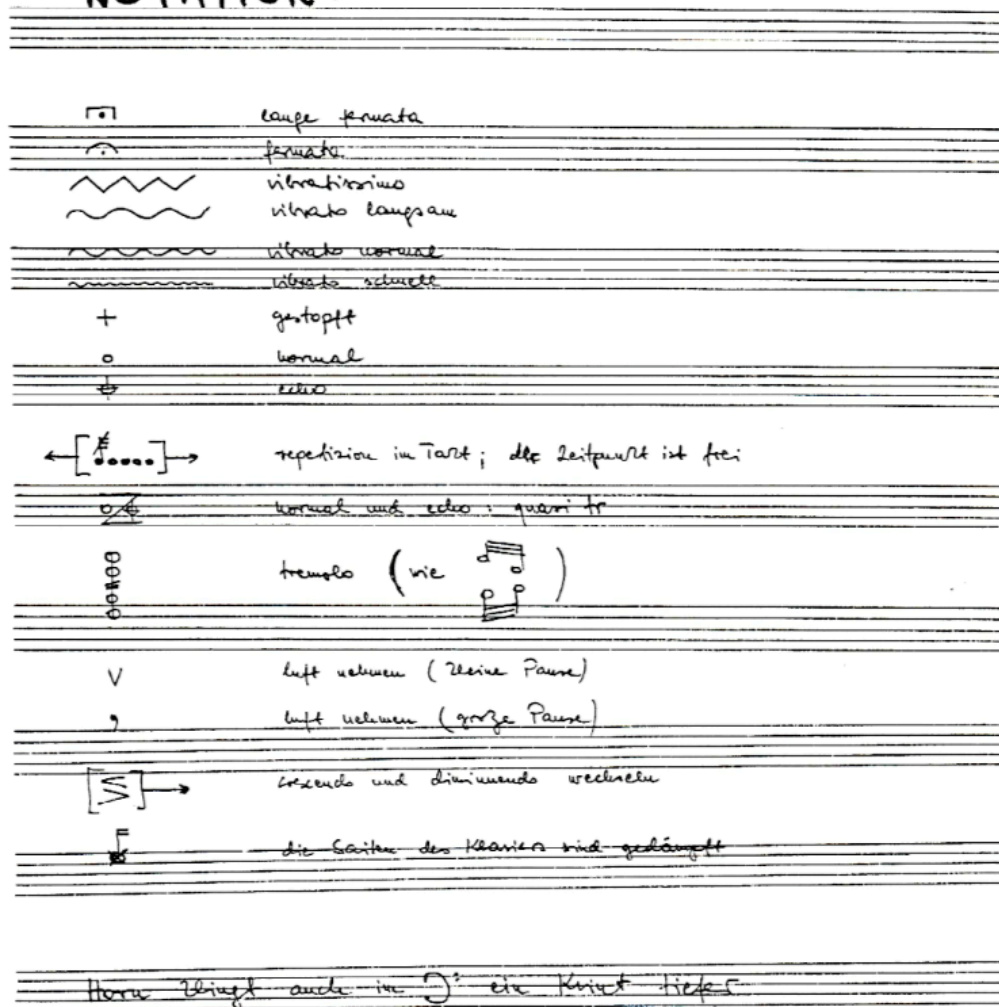 NOTATION
lange fermata
fermata
vibratissimo
vibrato langsam
vibrato normal
vibrato schnell
+ gestopft
o normal
echo
repetizion im Takt; der Zeitpunkt ist frei
normal und echo: quasi tr
tremolo (wie )
V luft nehmen (kleine Pause)
, luft nehmen (große Pause)
crescendo und diminuendo wechseln
die Saiten des Klaviers sind gedämpft
Horn klingt auch im 𝄢 ein Kvint tiefer